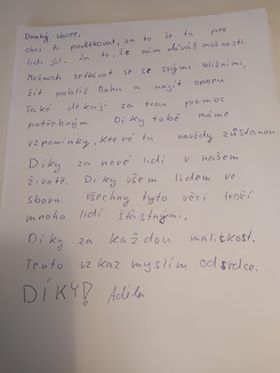 Drahý sbore,
chci ti poděkovat, za to že tu pro
lidi jsi. Za to, že nám dáváš možnosti.
Možnosti setkávat se se svými bližními,
žít poblíž Bohu a najít oporu
Také děkuji za tvou pomoc
potřebným. Díky tobě máme
vzpomínky, které tu navždy zůstanou
Díky za nové lidi v našem
životě. Díky všem lidem ve
sboru všechny tyto věci tvoří
mnoho lidí šťastnými.
Díky za každou maličkost.
Tento vzkaz myslím od srdce.
DÍKY! Adéla